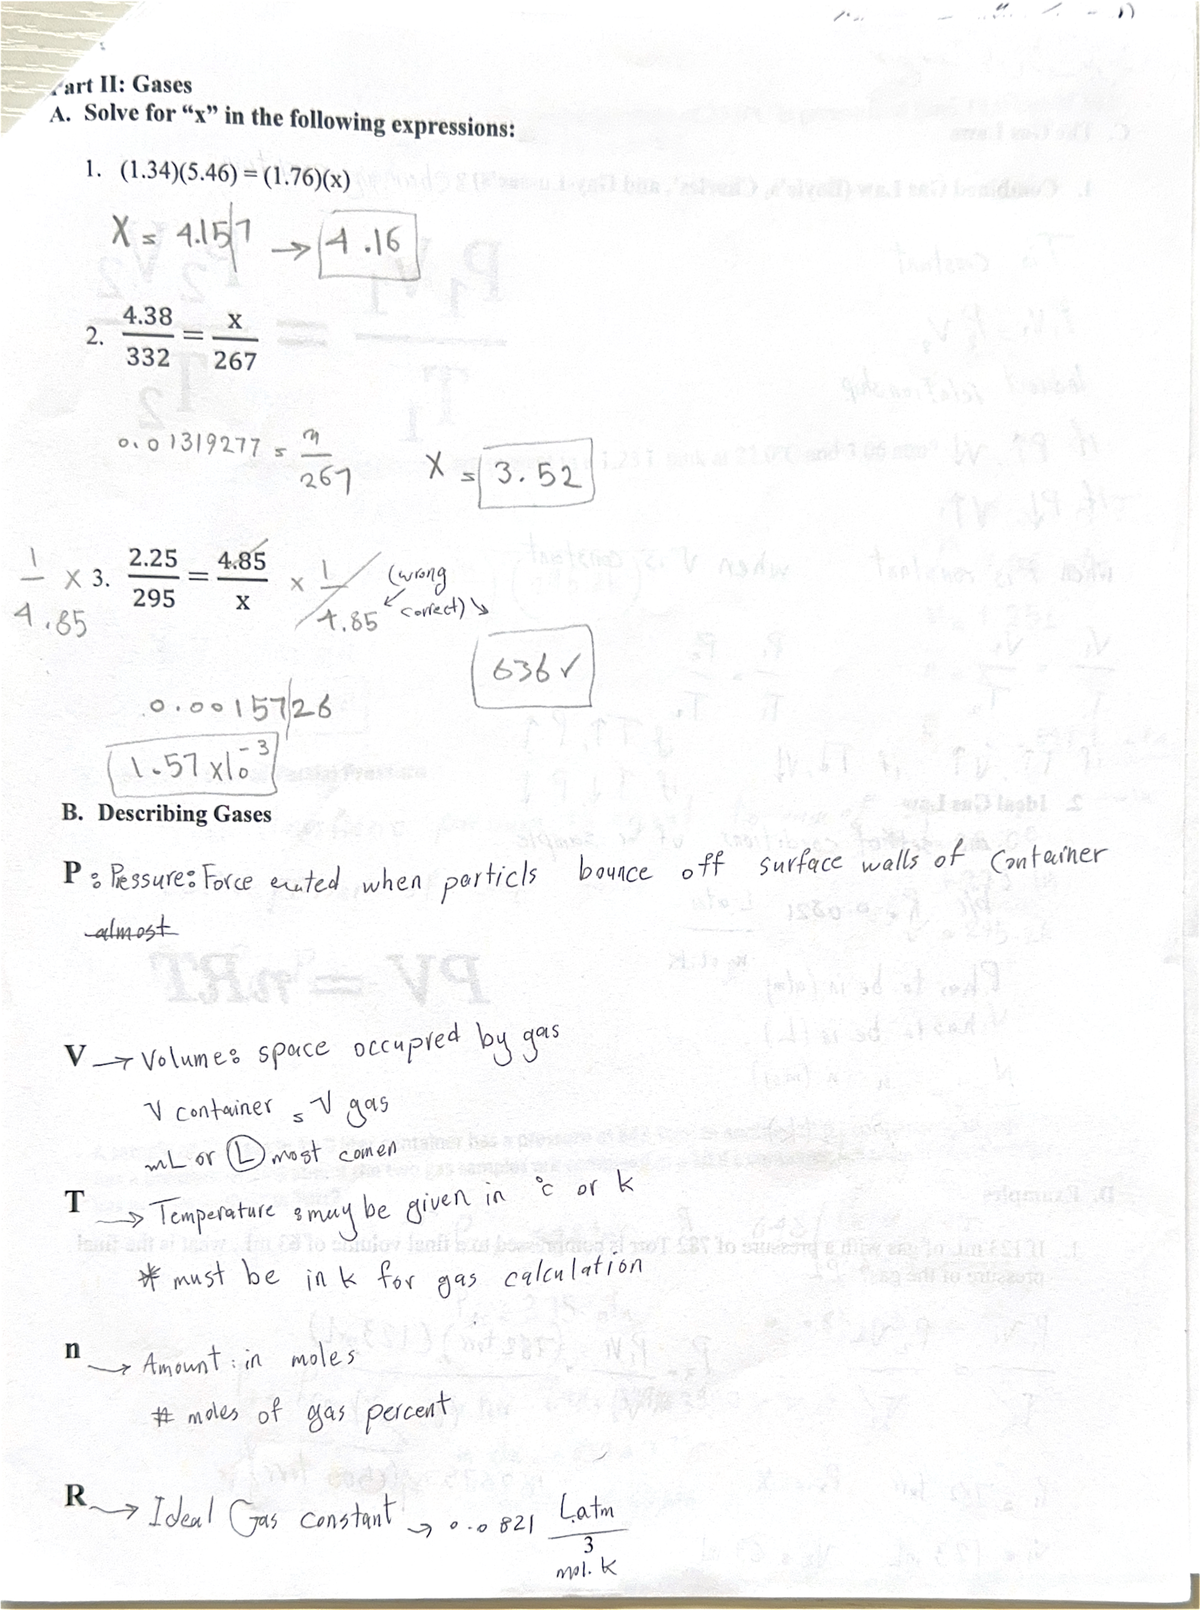 art II: Gases
A. Solve for “x” in the following expressions:
1. (1.34)(5.46) = (1.76)(x)
X = 4.157 → 4.16
2. 4.38/332 = x/267
0.01319277 = x/267 X = 3.52
1/4.85 × 3. 2.25/295 = 4.85/x × 1/4.85 (wrong
correct)
636 ✓
0.0015726
1.57 x10^-3
B. Describing Gases
P : Pressure: Force exuted when particls bounce off surface walls of Container
almost
V → Volume: space occupied by gas
V container = V gas
mL or L most comen
T → Temperature : may be given in °c or k
* must be in k for gas calculation
n → Amount : in moles
# moles of gas percent
R → Ideal Gas constant → 0.0821 L.atm/mol.k
3